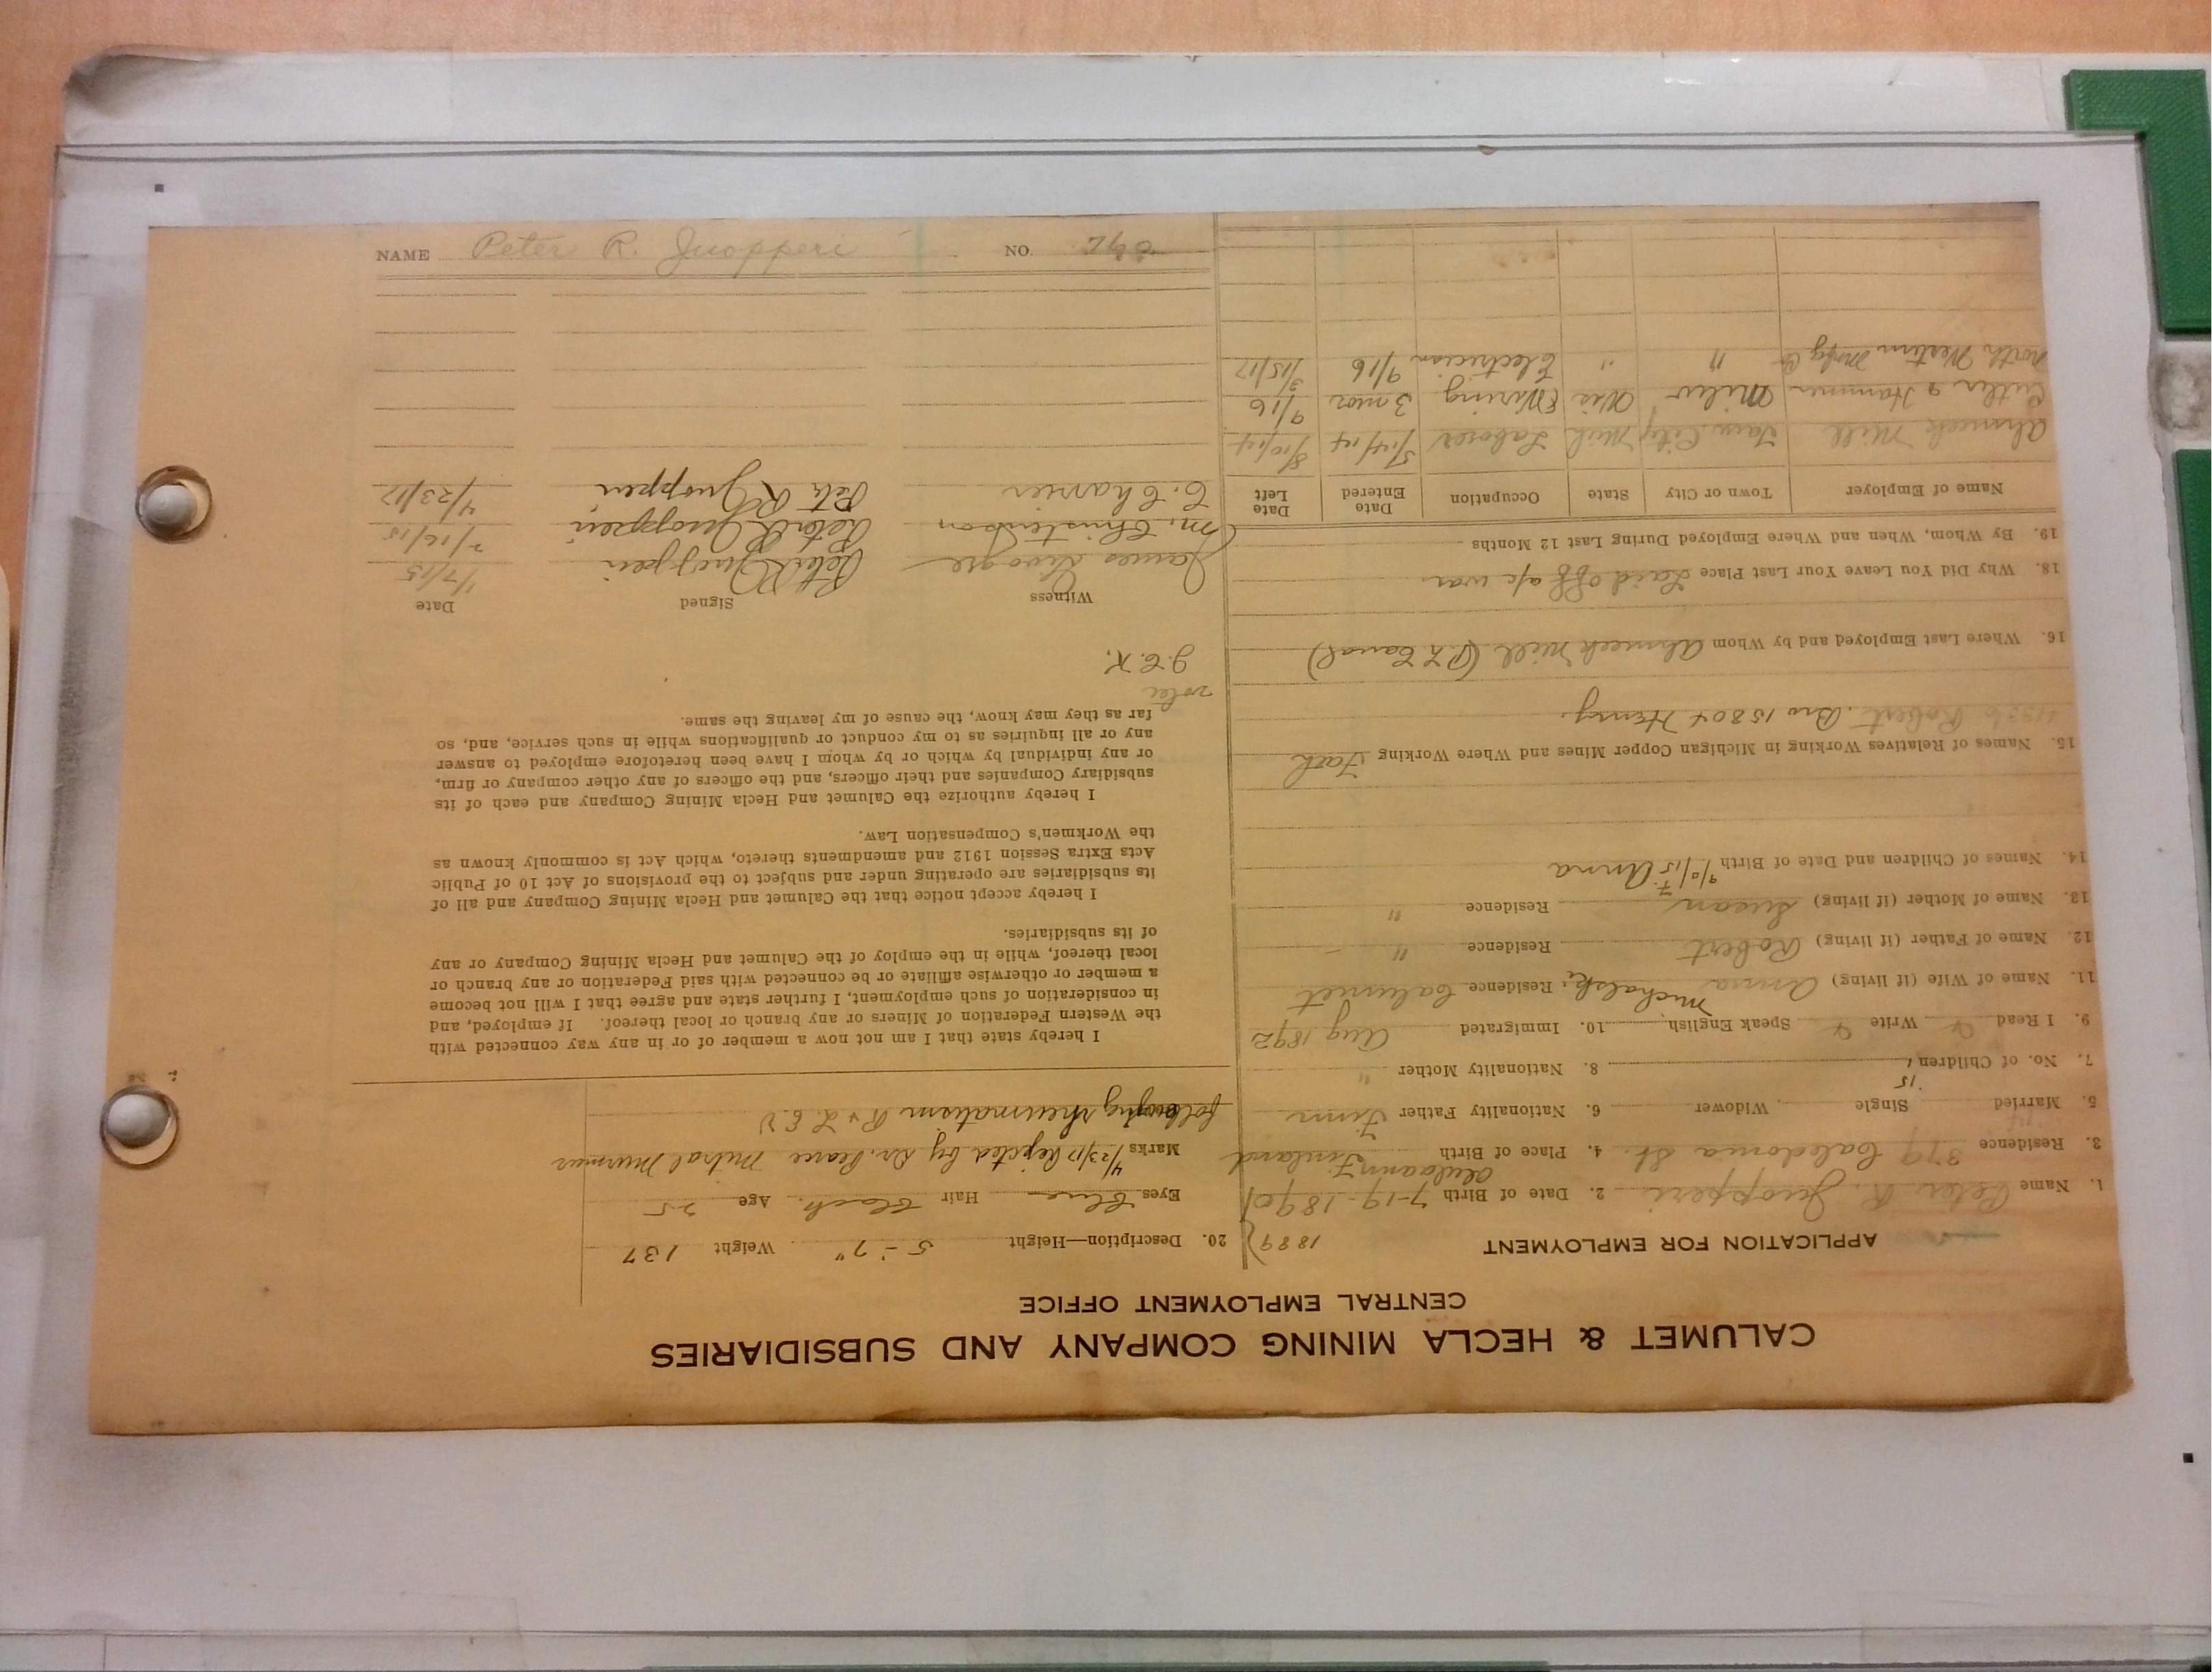 CALUMET & HECLA MINING COMPANY AND SUBSIDIARIES
CENTRAL EMPLOYMENT OFFICE
APPLICATION FOR EMPLOYMENT 1889
1. Name Peter R. Juopperi 2. Date of Birth 7-19-1890
3. Residence 379 Caledonia St. 4. Place of Birth Finland
5. Married Single Widower 6. Nationality Father Finn
15
7. No. of Children 1 8. Nationality Mother "
9. I Read Write Speak English 10. Immigrated Aug 1892
11. Name of Wife (if living) Anna Michalski Residence Calumet
12. Name of Father (if living) Robert Residence "
13. Name of Mother (if living) Susan Residence "
14. Names of Children and Date of Birth Anna
15. Names of Relatives Working in Michigan Copper Mines and Where Working Fath
Robert. Bro 15804 Henry.
16. Where Last Employed and by Whom Ahmeek Mill
18. Why Did You Leave Your Last Place Laid off a/c war
19. By Whom, When and Where Employed During Last 12 Months
Name of Employer Town or City State Occupation Date Entered Date Left
Ahmeek Mill Tam. City Mich Laborer 5/14/14 8/10/14
Cutler & Hammer Milw Wis Wiring 3 mos 9/16
North Western Mnfg Co " " Electrician 9/16 3/15/17
20. Description—Height 5-7" Weight 137
Eyes Blue Hair Black Age 25
Marks 4/23/17 Rejected by Dr. Pearce Mitral Murmur
following rheumatism
I hereby state that I am not now a member of or in any way connected with
the Western Federation of Miners or any branch or local thereof. If employed, and
in consideration of such employment, I further state and agree that I will not become
a member or otherwise affiliate or be connected with said Federation or any branch or
local thereof, while in the employ of the Calumet and Hecla Mining Company or any
of its subsidiaries.
I hereby accept notice that the Calumet and Hecla Mining Company and all of
its subsidiaries are operating under and subject to the provisions of Act 10 of Public
Acts Extra Session 1912 and amendments thereto, which Act is commonly known as
the Workmen's Compensation Law.
I hereby authorize the Calumet and Hecla Mining Company and each of its
subsidiary Companies and their officers, and the officers of any other company or firm,
or any individual by which or by whom I have been heretofore employed to answer
any or all inquiries as to my conduct or qualifications while in such service, and, so
far as they may know, the cause of my leaving the same.
J.E.K.
Witness Signed Date
James Peter R Juopperi 1/7/15
M. Christenson Peter R Juopperi 7/16/15
C. Charrier Peter R Juopperi 4/23/17
NAME Peter R. Juopperi NO.